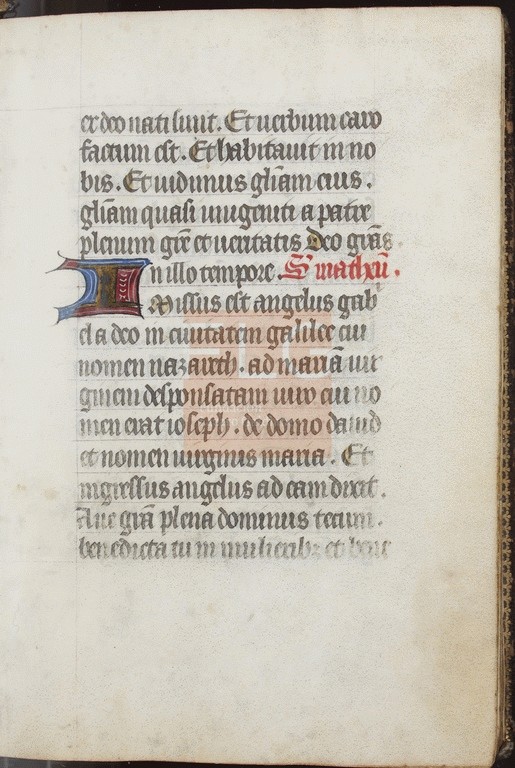 ex deo nati sunt. Et verbum caro
factum est. Et habitavit in no
bis. Et vidimus gl̄iam eius.
gl̄iam quasi unigeniti a patre
plenum gr̄e et veritatis Deo grās
In illo tempore. S matheū.
Missus est angelus gab
el a deo in civitatem galilee cui
nomen nazareth. ad mariā vir
ginem desponsatam viro cui no
men erat ioseph. de domo david
et nomen virginis maria. Et
ingressus angelus ad eam dixit.
Ave grā plena dominus tecum.
benedicta tu in mulierib; et bene